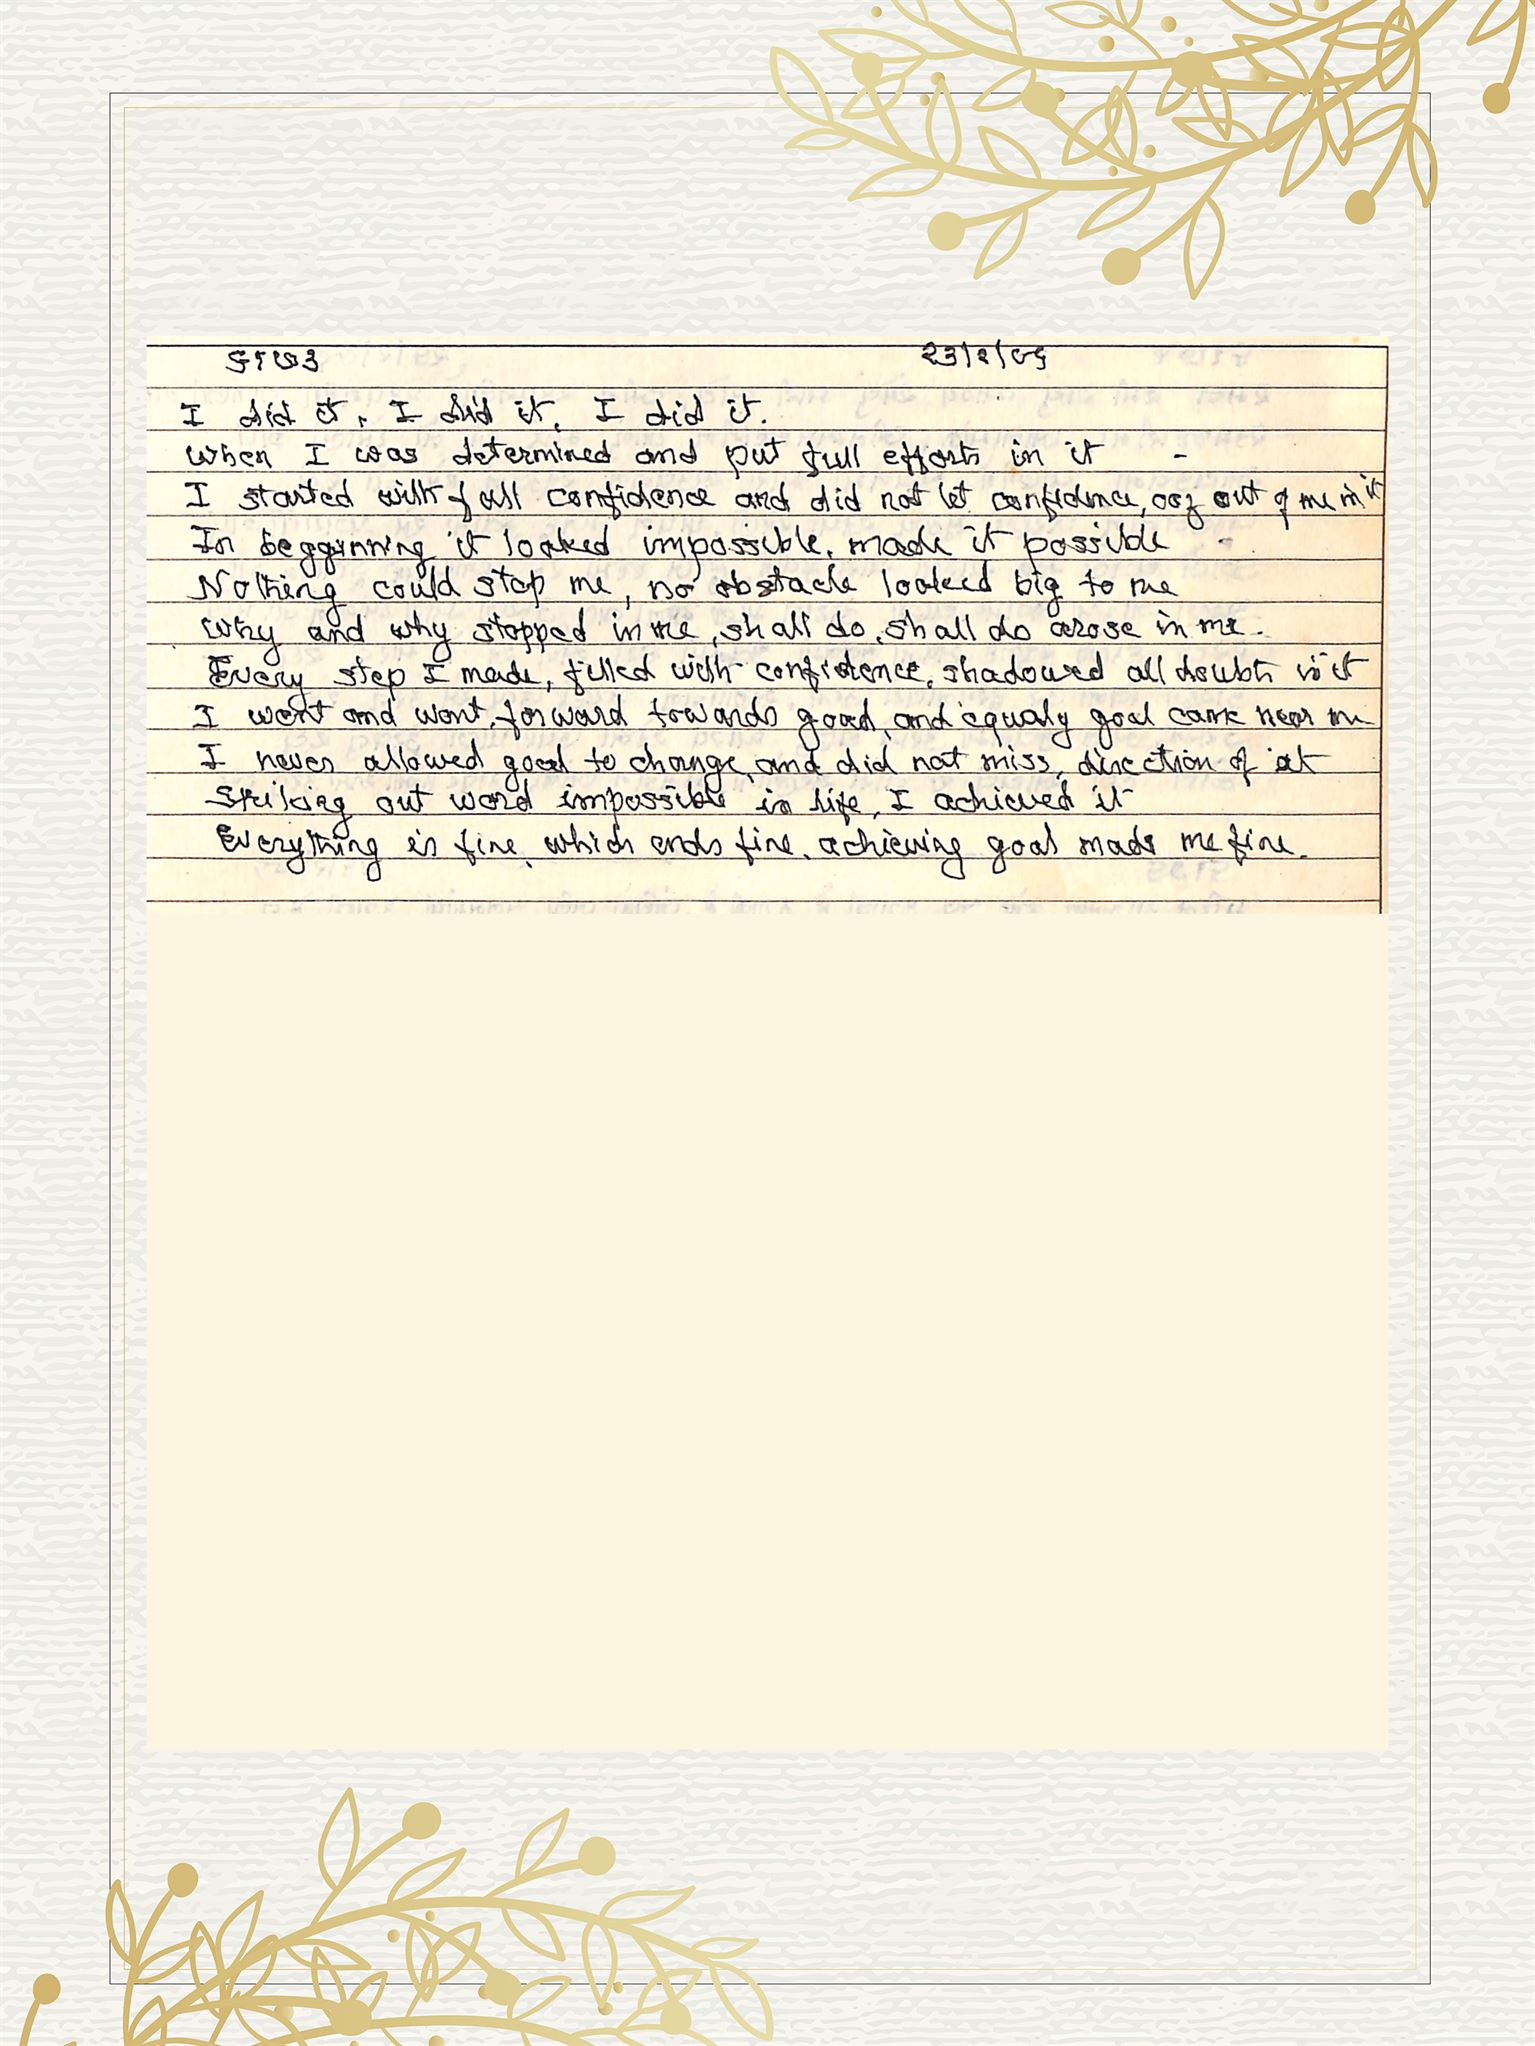 I did it, I did it, I did it.
when I was determined and put full efforts in it -
I started with full confidence and did not let confidence, ooz out of me in it
In beggynning it looked impossible, made it possible -
Nothing could stop me, no obstacle looked big to me
why and why stopped in me, shall do, shall do arose in me.
Every step I made, filled with confidence, shadowed all doubts in it
I went and went, forward towards goal, and equaly goal came near me
I never allowed goal to change, and did not miss, direction of it
Striking out word impossible in life, I achieved it
Everything is fine, which ends fine, achieving goal made me fine.